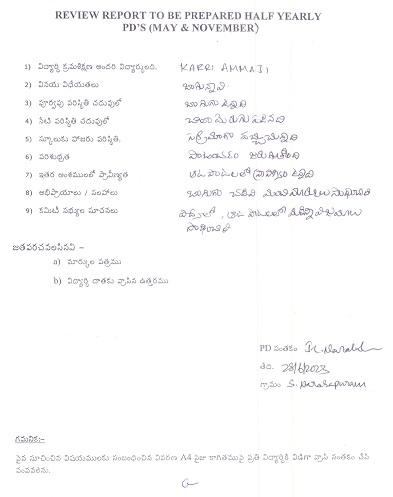 REVIEW REPORT TO BE PREPARED HALF YEARLY
PD'S (MAY & NOVEMBER)
1) విద్యార్థి క్రమశిక్షణ అందరి విద్యార్థులది. KARRI AMMAJI
2) వినయ విధేయతలు బాగున్నావి
3) పూర్వపు పరిస్థితి చదువులో బాగుగా ఉన్నది
4) నేటి పరిస్థితి చదువులో
5) స్కూలుకు హాజరు పరిస్థితి. సక్రమంగా వచ్చుచున్నది
6) పరిశుభ్రత పాటించడం జరుగుతోంది
7) ఇతర అంశములలో ప్రావీణ్యత ఆట పాటలలో ప్రావీణ్యం ఉన్నది
8) అభిప్రాయాలు / సలహాలు బాగుగా చదివి మంచి మార్కులు
9) కమిటీ సభ్యుల సూచనలు చదువులో, ఆట పాటలలో విజయాలు
సాధించాలి
జతపరచవలసినవి :-
a) మార్కుల పత్రము
b) విద్యార్థి దాతకు వ్రాసిన ఉత్తరము
PD సంతకం
తేది. 28/6/2023
గ్రామం S. Narasapuram
గమనిక:-
పైన సూచించిన విషయములకు సంబంధించిన వివరణ A4 సైజు కాగితముపై ప్రతి విద్యార్థికి విడిగా వ్రాసి సంతకం చేసి
పంపవలెను.